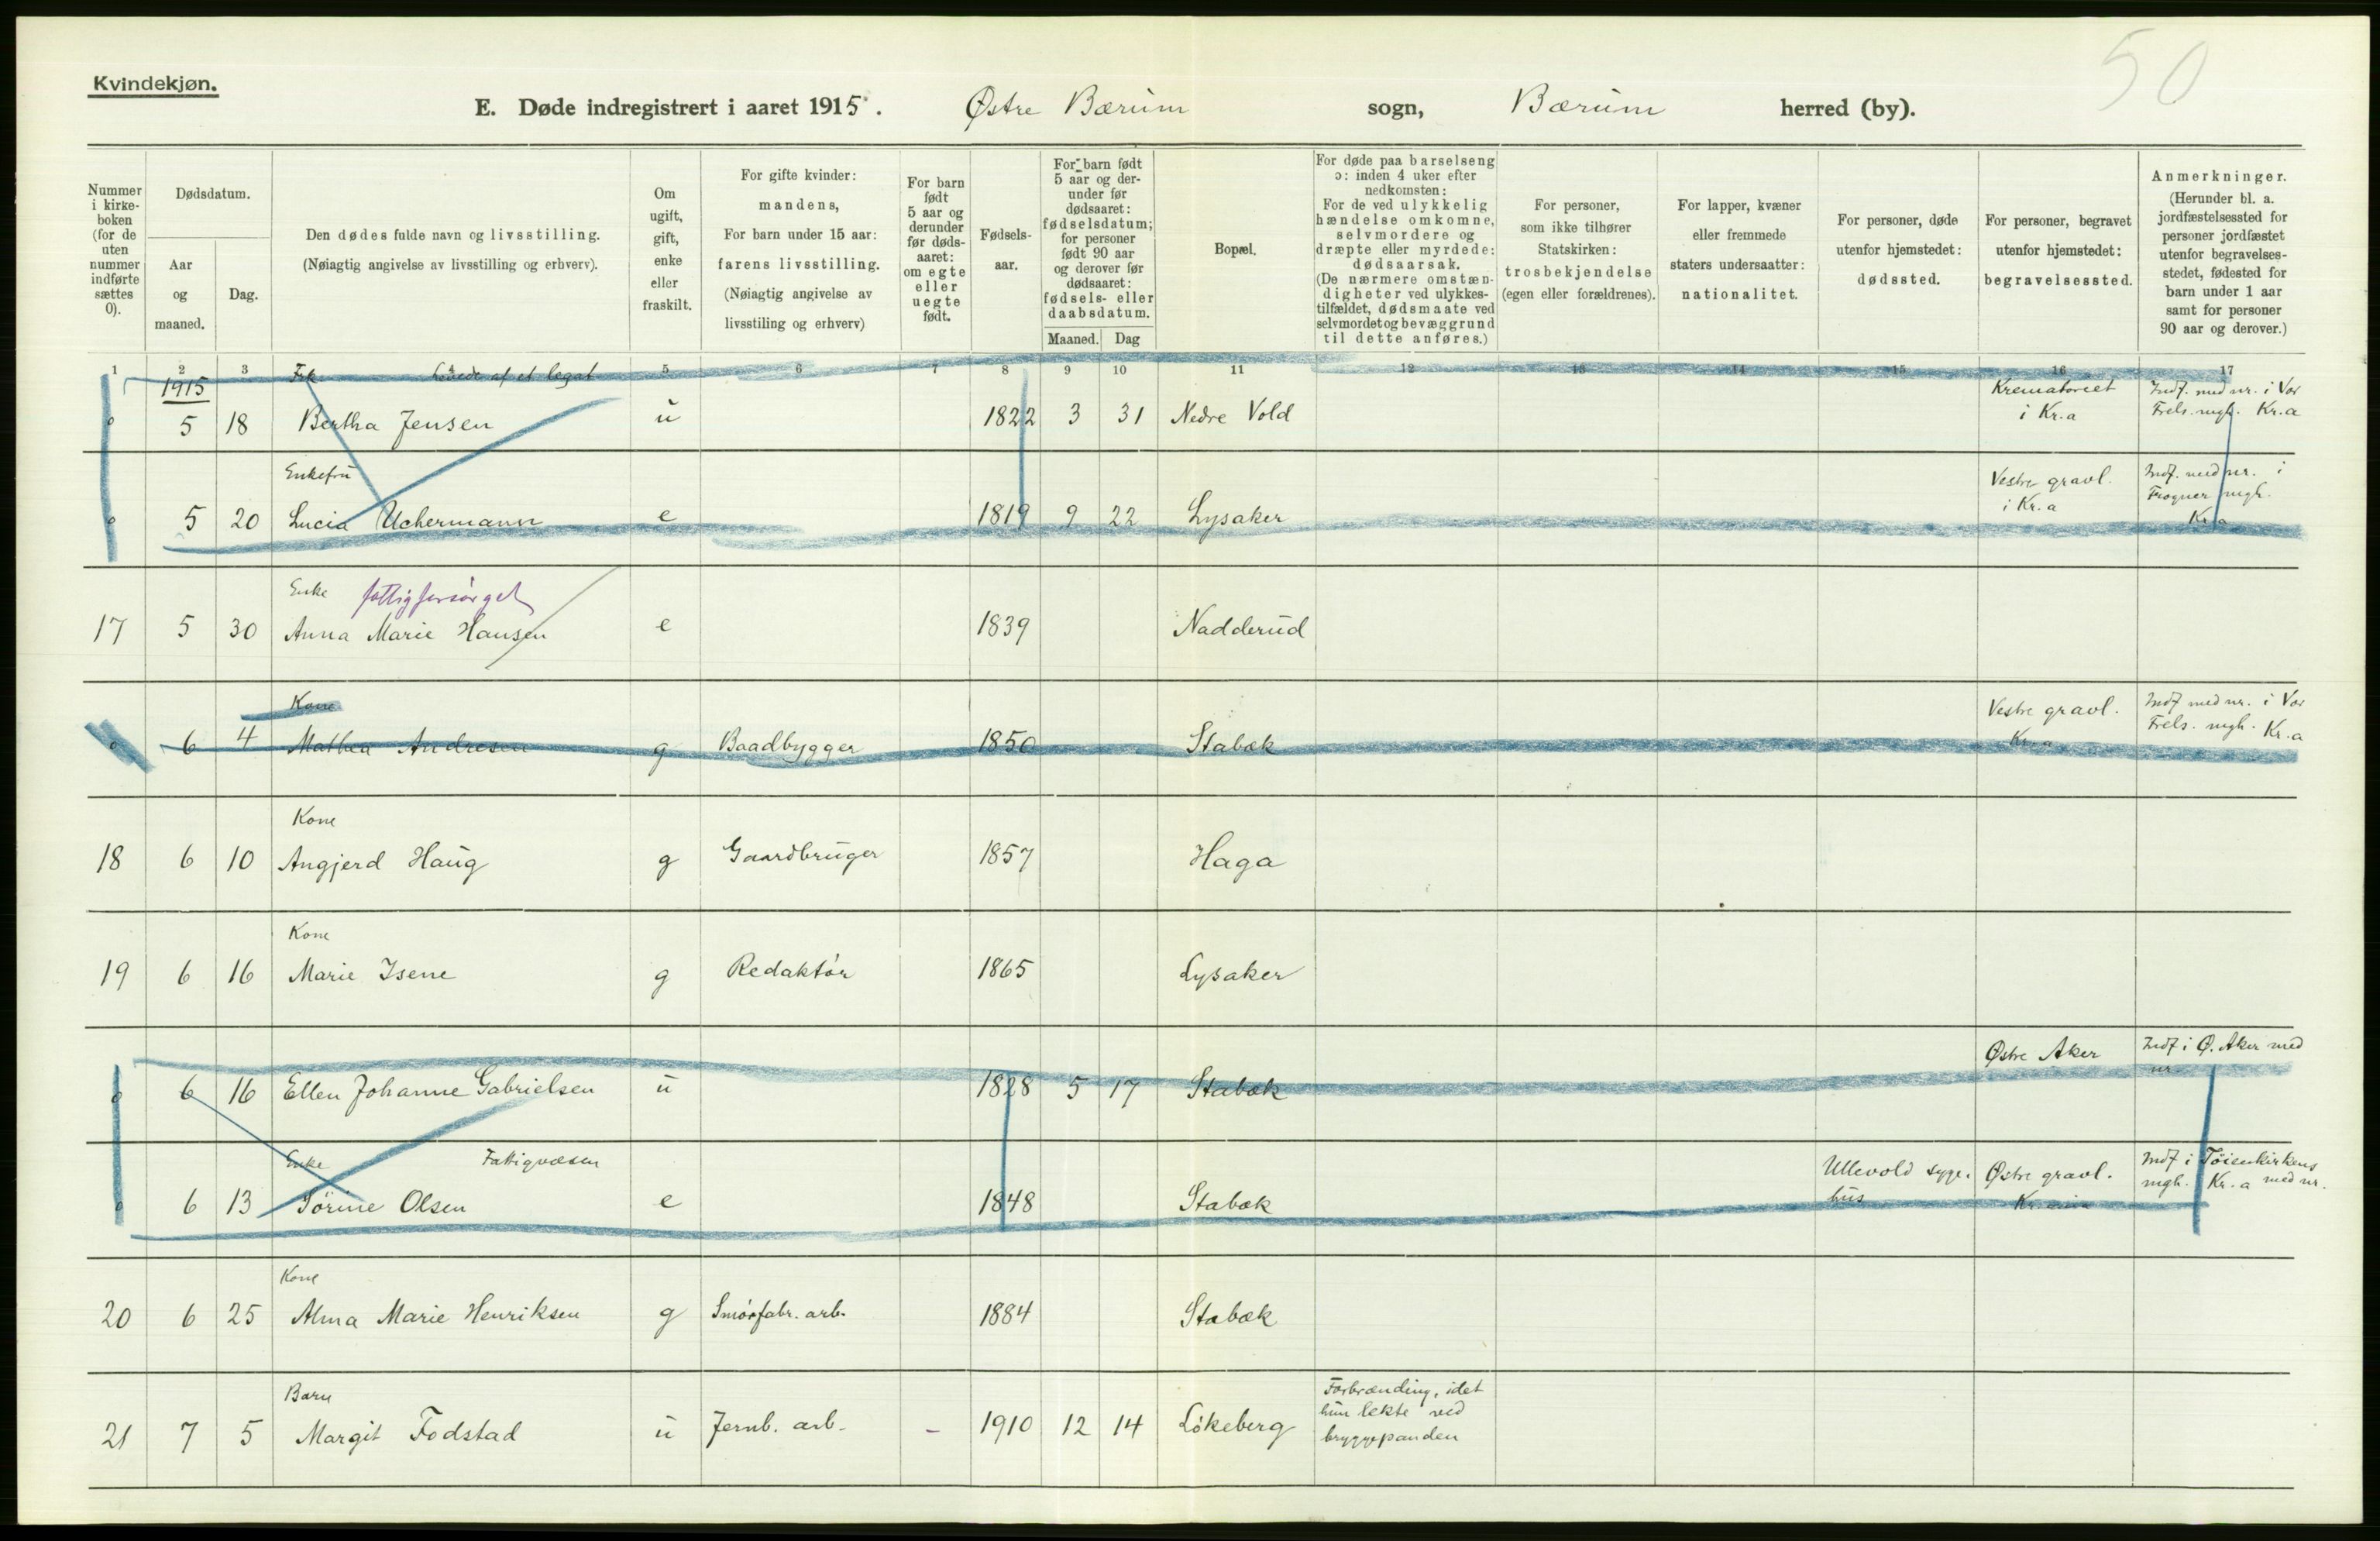 50
Kvindekjøn.
E. Døde indregistrert i aaret 1915. Østre Bærum sogn, Bærum herred (by).
Nummer i kirke-boken (for de uten nummer indførte sættes 0).
Dødsdatum.
Aar og maaned.
Dag.
Den dødes fulde navn og livsstilling.
(Nøiagtig angivelse av livsstilling og erhverv).
Om ugift, gift, enke eller fraskilt.
For gifte kvinder:
mandens,
For barn under 15 aar:
farens livsstilling.
(Nøiagtig angivelse av
livsstiling og erhverv)
For barn født 5 aar og derunder før døds-aaret: om egte eller uegte født.
Fødsels-aar.
For barn født 5 aar og der-under før dødsaaret: fødselsdatum; for personer født 90 aar og derover før dødsaaret: fødsels- eller daabsdatum.
Maaned. Dag
Bopæl.
For døde paa barselseng
ɔ: inden 4 uker efter
nedkomsten:
For de ved ulykkelig
hændelse omkomne,
selvmordere og
dræpte eller myrdede:
dødsaarsak.
(De nærmere omstæn-
digheter ved ulykkes-
tilfældet, dødsmaate ved
selvmordet og bevæggrund
til dette anføres.)
For personer,
som ikke tilhører
Statskirken:
trosbekjendelse
(egen eller forældrenes).
For lapper, kvæner
eller fremmede
staters undersaatter:
nationalitet.
For personer, døde
utenfor hjemstedet:
dødssted.
For personer, begravet
utenfor hjemstedet:
begravelsessted.
Anmerkninger.
(Herunder bl. a.
jordfæstelsessted for
personer jordfæstet
utenfor begravelses-
stedet, fødested for
barn under 1 aar
samt for personer
90 aar og derover.)
1 2 3 5 6 7 8 9 10 11 12 13 14 15 16 17
1915
Frk. Levede af et legat
0 5 18 Bertha Jensen u 1822 3 31 Nedre Vold Krematoriet i Kr.a Indf. med nr. i Vor Frels. mgh. Kr.a
Enkefru
0 5 20 Lucia Uchermann e 1819 9 22 Lysaker Vestre gravl. i Kr.a Indf. med nr. i Frogner mgh. Kr.a
Enke fattigforsørget
17 5 30 Anna Marie Hansen e 1839 Nadderud
Kone
0 6 4 Mathea Andresen g Baadbygger 1850 Stabæk Vestre gravl. Kr.a Indf med nr. i Vor Frels. mgh. Kr.a
Kone
18 6 10 Angjerd Haug g Gaardbruger 1857 Haga
Kone
19 6 16 Marie Isene g Redaktør 1865 Lysaker
0 6 16 Ellen Johanne Gabrielsen u 1828 5 17 Stabæk Østre Aker Indf i Ø. Aker med nr.
Enke Fattigvæsen
0 6 13 Sørine Olsen e 1848 Stabæk Ullevold syge-hus Østre gravl. Indf i Tøienkirkens mgh. Kr.a med nr.
Kone
20 6 25 Alma Marie Henriksen g Smørfabr. arb. 1884 Stabæk
Barn
21 7 5 Margit Fodstad u Jernb. arb. - 1910 12 14 Løkeberg Forbrænding, idet hun lekte ved bryggepanden